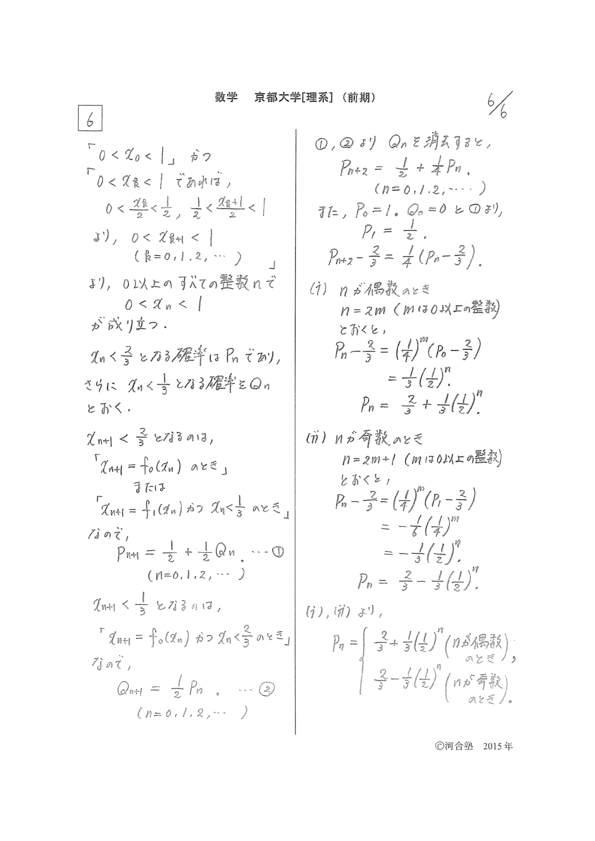 数学 京都大学[理系] (前期)
6/6
6
「0 < x₀ < 1」かつ
「0 < x_k < 1 であれば,
0 < x_k/2 < 1/2 , 1/2 < (x_k+1)/2 < 1
より, 0 < x_{k+1} < 1
(k=0,1,2,…) 」
より, 0以上のすべての整数nで
0 < x_n < 1
が成り立つ.
x_n < 2/3 となる確率はP_nであり,
さらに x_n < 1/3 となる確率をQ_n
とおく.
x_{n+1} < 2/3 となるのは,
「x_{n+1} = f₀(x_n) のとき」
または
「x_{n+1} = f₁(x_n) かつ x_n < 1/3 のとき」
なので,
P_{n+1} = 1/2 + 1/2 Q_n . …①
(n=0,1,2,…)
x_{n+1} < 1/3 となるのは,
「x_{n+1} = f₀(x_n) かつ x_n < 2/3 のとき」
なので,
Q_{n+1} = 1/2 P_n . …②
(n=0,1,2,…)
①,②より Q_nを消去すると,
P_{n+2} = 1/2 + 1/4 P_n .
(n=0,1,2,…)
また, P₀=1. Q₀=0 と①より,
P₁ = 1/2 .
P_{n+2} − 2/3 = 1/4 (P_n − 2/3) .
(i) nが偶数のとき
n=2m (mは0以上の整数)
とおくと,
P_n − 2/3 = (1/4)^m (P₀ − 2/3)
= 1/3 (1/2)^n .
P_n = 2/3 + 1/3 (1/2)^n .
(ii) nが奇数のとき
n=2m+1 (mは0以上の整数)
とおくと,
P_n − 2/3 = (1/4)^m (P₁ − 2/3)
= −1/6 (1/4)^m
= −1/3 (1/2)^n .
P_n = 2/3 − 1/3 (1/2)^n .
(i),(ii)より,
P_n = { 2/3 + 1/3 (1/2)^n (nが偶数のとき),
2/3 − 1/3 (1/2)^n (nが奇数のとき).
©河合塾 2015年